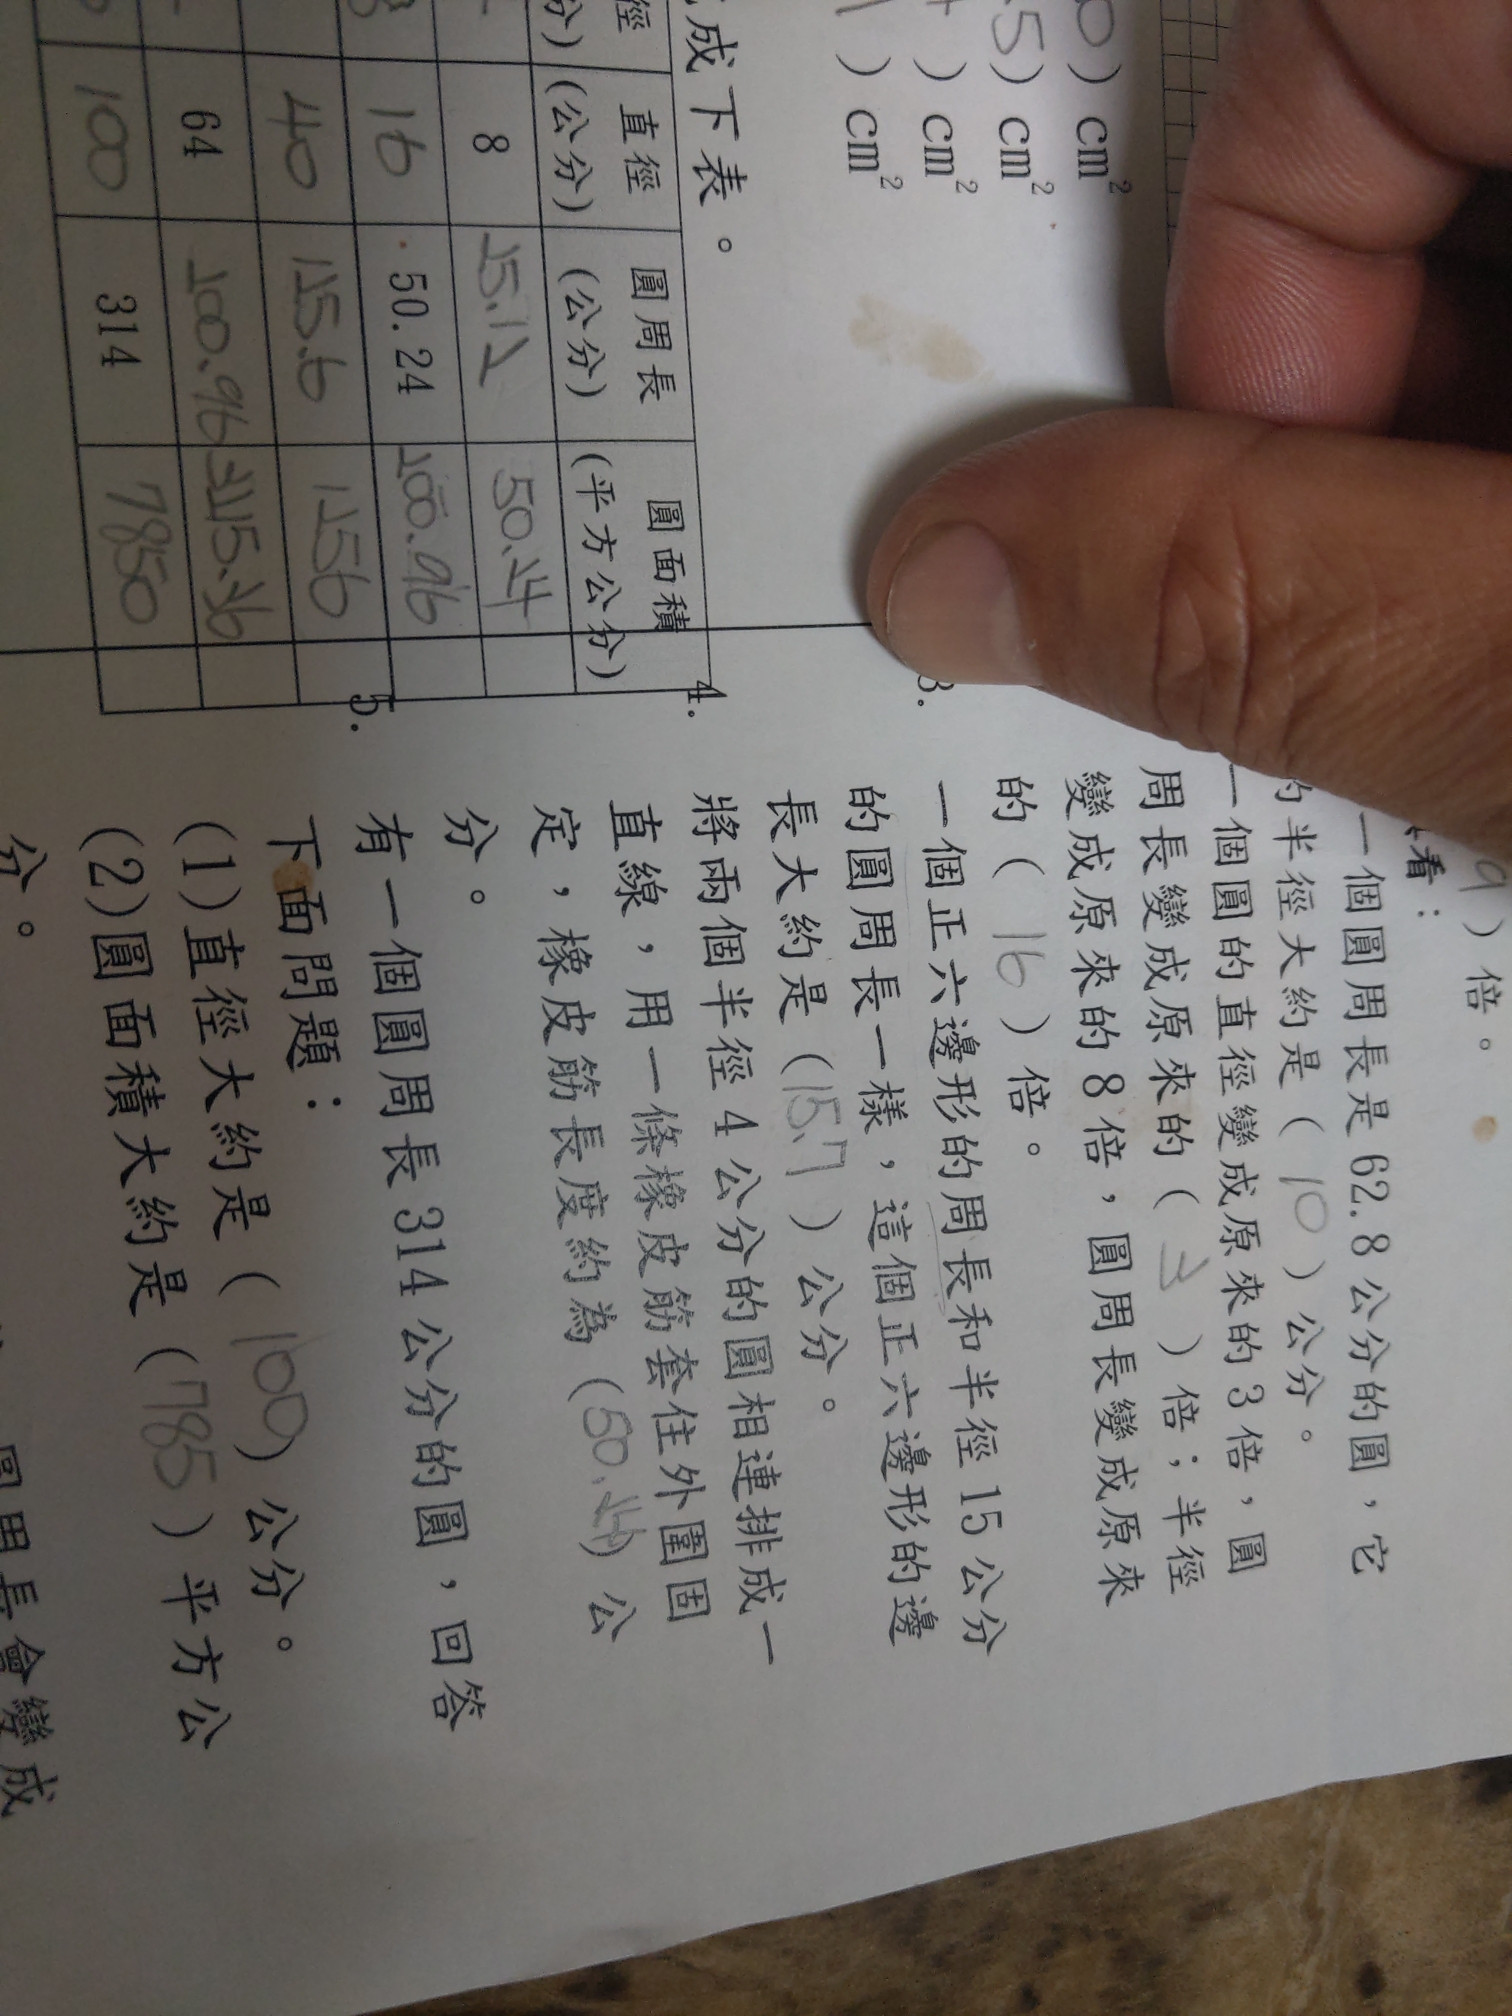 0 ) cm²
.5 ) cm²
) cm²
) cm²
成下表。
徑 直徑 圓周長 圓面積
分) (公分) (公分) (平方公分)
8 25.12 50.24
16 50.24 200.96
40 125.6 1256
64 200.96 3215.36
100 314 7850
9 ) 倍。
看：
一個圓周長是 62.8 公分的圓，它
的半徑大約是 ( 10 ) 公分。
一個圓的直徑變成原來的 3 倍，圓
周長變成原來的 ( 3 ) 倍；半徑
變成原來的 8 倍，圓周長變成原來
的 ( 16 ) 倍。
3. 一個正六邊形的周長和半徑 15 公分
的圓周長一樣，這個正六邊形的邊
長大約是 (15.7 ) 公分。
4. 將兩個半徑 4 公分的圓相連排成一
直線，用一條橡皮筋套住外圍固
定，橡皮筋長度約為 (50.24) 公
分。
5. 有一個圓周長 314 公分的圓，回答
下面問題：
(1)直徑大約是 ( 100) 公分。
(2)圓面積大約是 (785 ) 平方公
分。
圓周長會變成